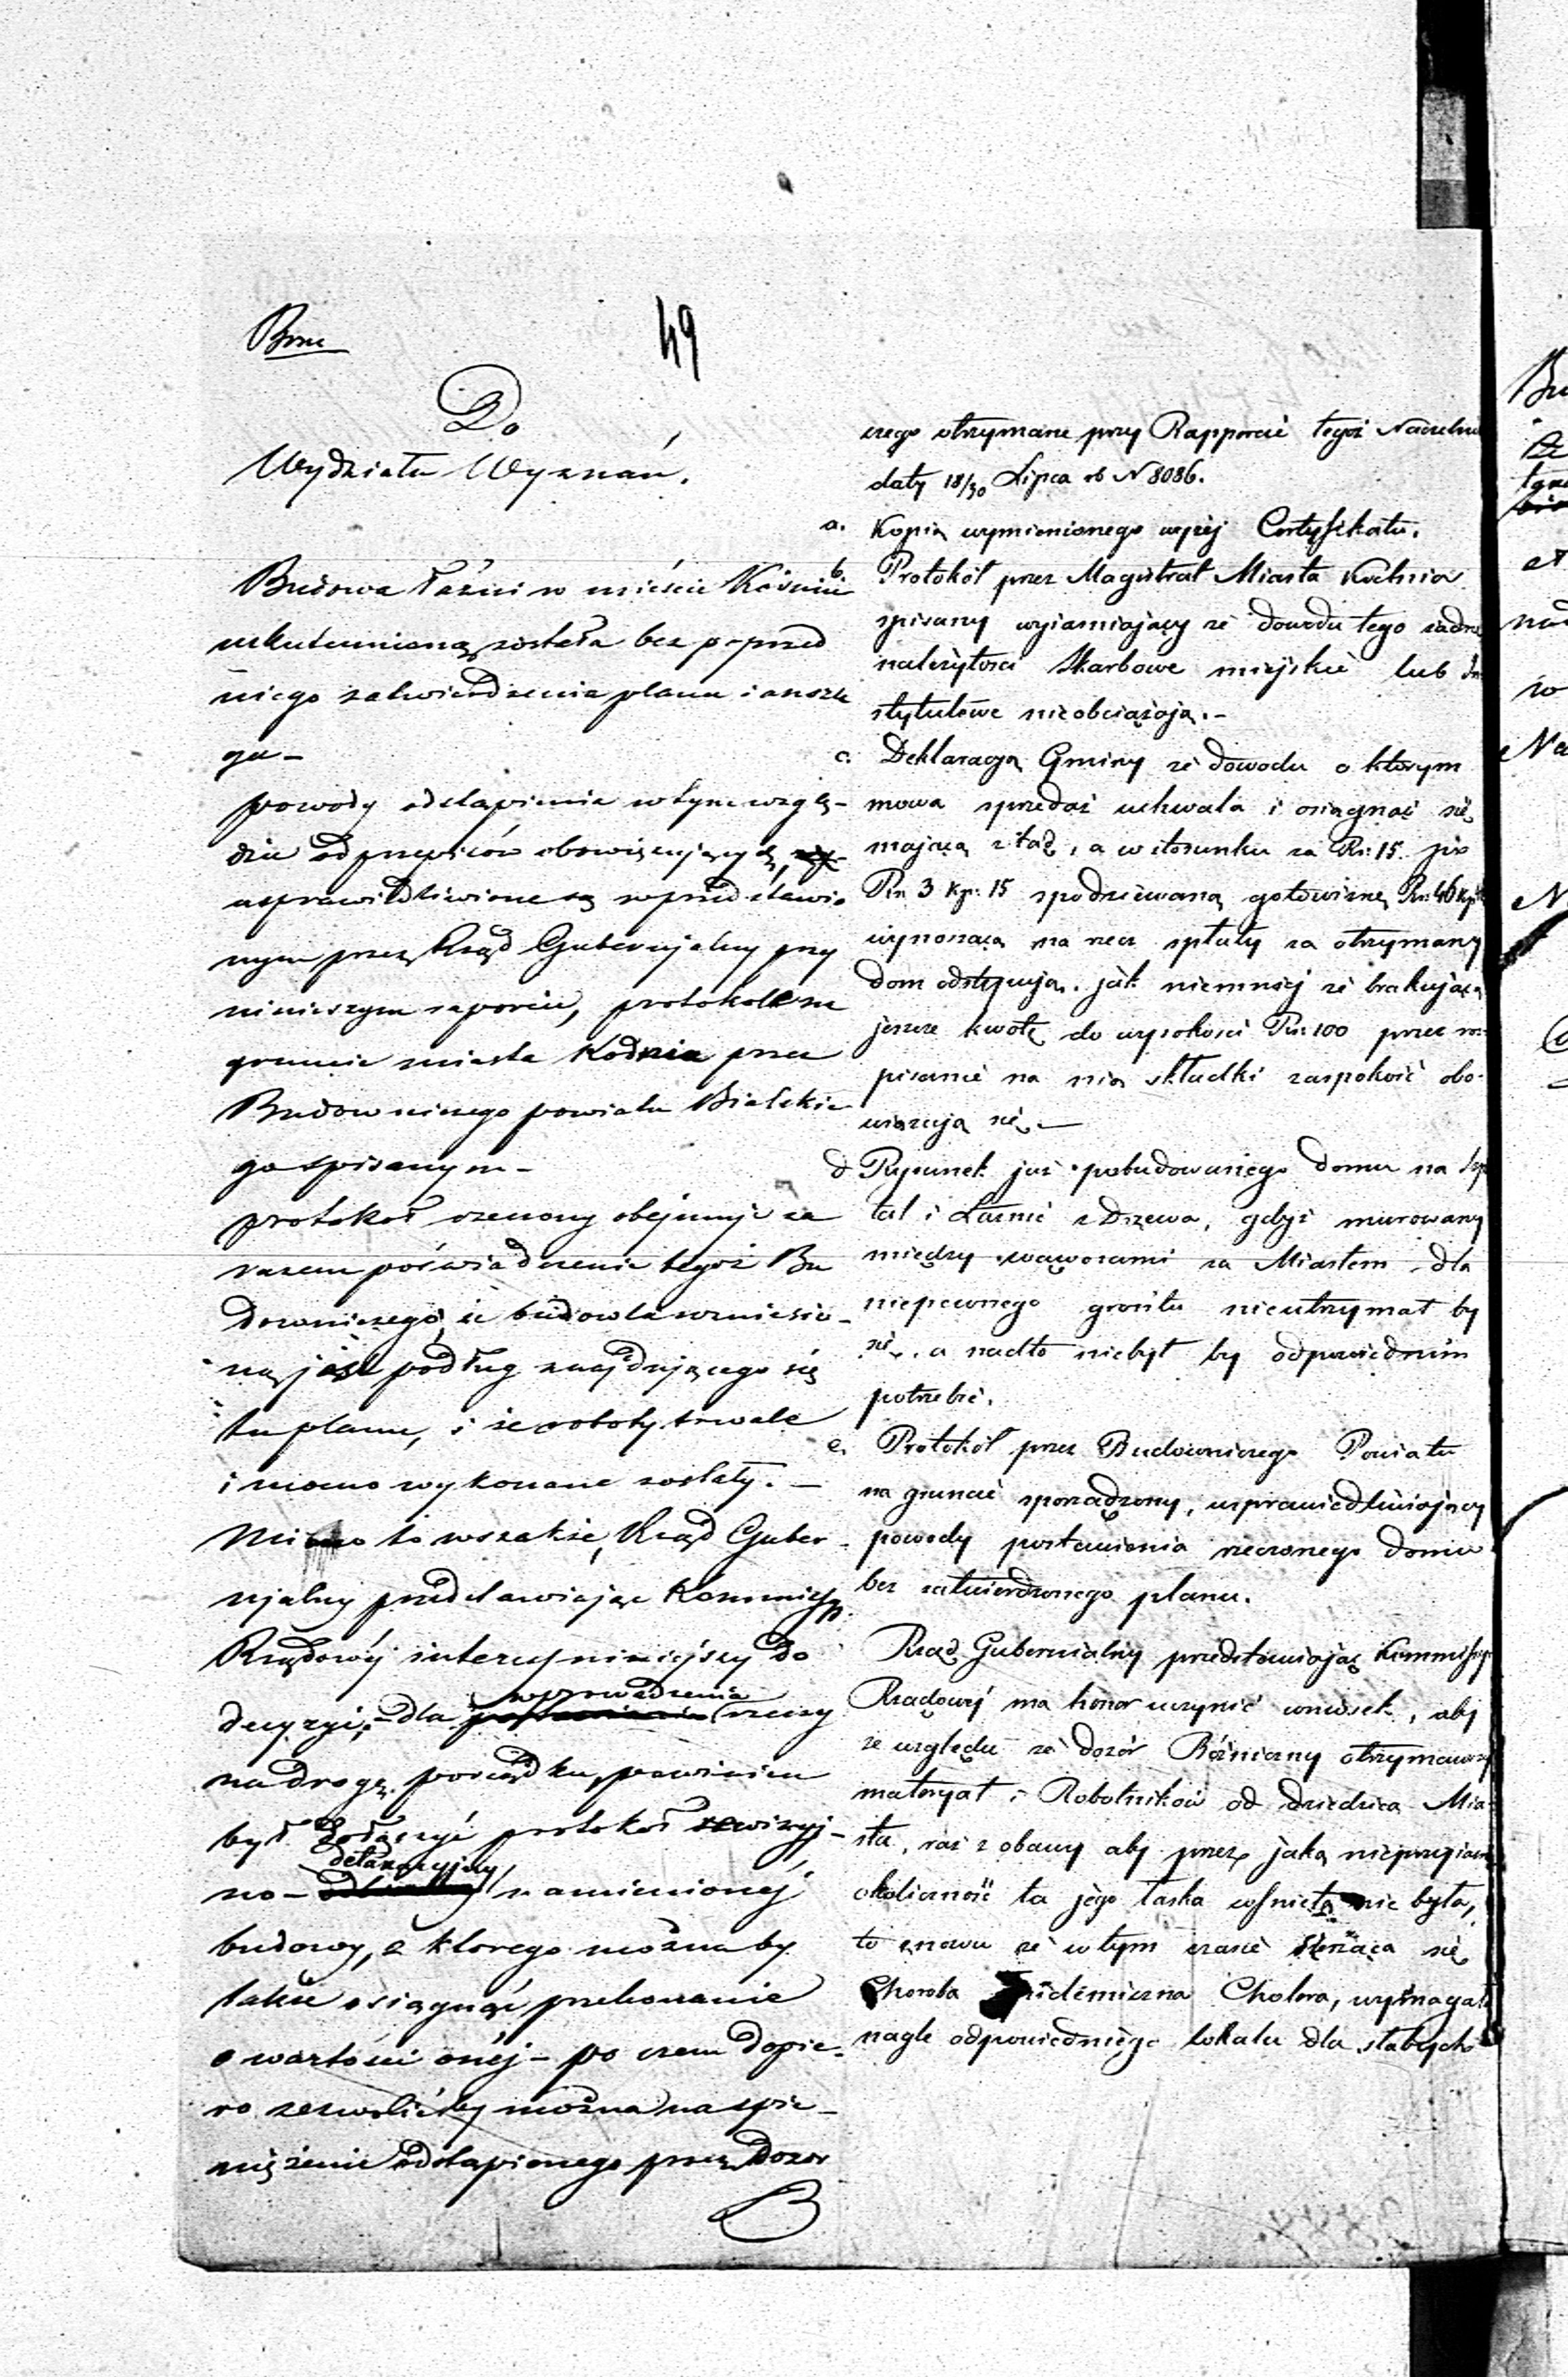 49
Do
Wydziału Wyznań.
Budowa Łaźni w mieście Kodniu
uskutecznioną została bez poprzed
niego zatwierdzenia planu i anszla
gu –
powody odstąpienia w tym wzglę-
dzie od przepisów obowiązujących,
usprawiedliwione są w przedstawio
nym przez Rząd Gubernjalny przy
niniejszym raporcie, protokole na
gruncie miasta Kodnia przez
Budowniczego powiatu Bialskie
go spisanym –
protokół rzeczony obejmuje za
razem poświadczenie tegoż Bu
downiczego, że budowla wzniesio-
ną jest podług znajdującego się
tu planu, i że roboty trwale
i mocno wykonane zostały. –
Mimo to wszakże, Rząd Guber-
njalny przedstawiając Kommissyi
Rządowéj interes niniejszy do
decyzyi, – dla wprowadzenia rzeczy
na drogę porządku, powinien
był dołączyć protokół rewizyj-
no – detaxacyjny namienionéj
budowy, z którego można by
także osiągnąć przekonanie
o wartości onéj – po czem dopie-
ro zezwolićby można na spie-
niężenie odstąpionego przez Dozor
czego otrzymane przy Rapporcie tegoż Naczelni
daty 18/30 Lipca rb N 8086.
a. Kopią wymienionego wyżéj Certyfikatu.
b. Protokół przez Magistrat Miasta Kodnia
spisany wyjaśniający że dowodu tego żadne
należytości Skarbowe miejskie lub In
stytutowe nieobciążają. –
c. Deklaracyą Gminy że dowodu o którym
mowa sprzedaż uchwala i osiągnąć się
mającą z tąd, a w stosunku za Rs: 15. po
Rs. 3 kp: 15 spodziewaną gotowiznę Rs: 46 kp
wynoszącą na rzecz spłaty za otrzymany
dom odstępują. jak niemniej że brakującą
jeszcze kwotę do wysokości Rs: 100 przez roz
pisanie na nią składki zaspokoić obo-
wiązują się. –
d Rysunek już pobudowanego domu na Szp
tal i Łaźnię z Drzewa, gdyż murowany
między wąwozami za Miastem dla
niepewnego gruntu nieutrzymał by
się, a nadto niebył by odpowiednim
potrzebie.
e. Protokół przez Budowniczego Powiatu
na gruncie sporządzony, usprawiedliwiający
powody postawienia rzeczonego domu
bez zatwierdzonego planu.
Rząd Gubernialny przedstawiając Kommissyi
Rządowéj ma honor uczynić wniosek, aby
ze względu że dozór Bóżniczny otrzymawszy
materyał i Robotników od dziedzica Mia-
sta, raz z obawy aby przez jaką nieprzyjazną
okoliczność ta jego łaska cofniętą nie była,
to znowu że w tym czasie szerząca się
Choroba Epidemiczna Cholera, wymagała
nagle odpowiedniego lokalu dla słabych